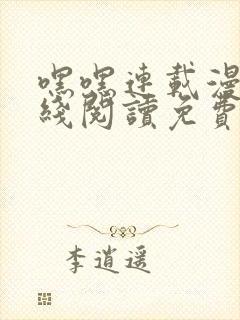 嘿嘿連載漫
綫閱讀免費
李逍遥